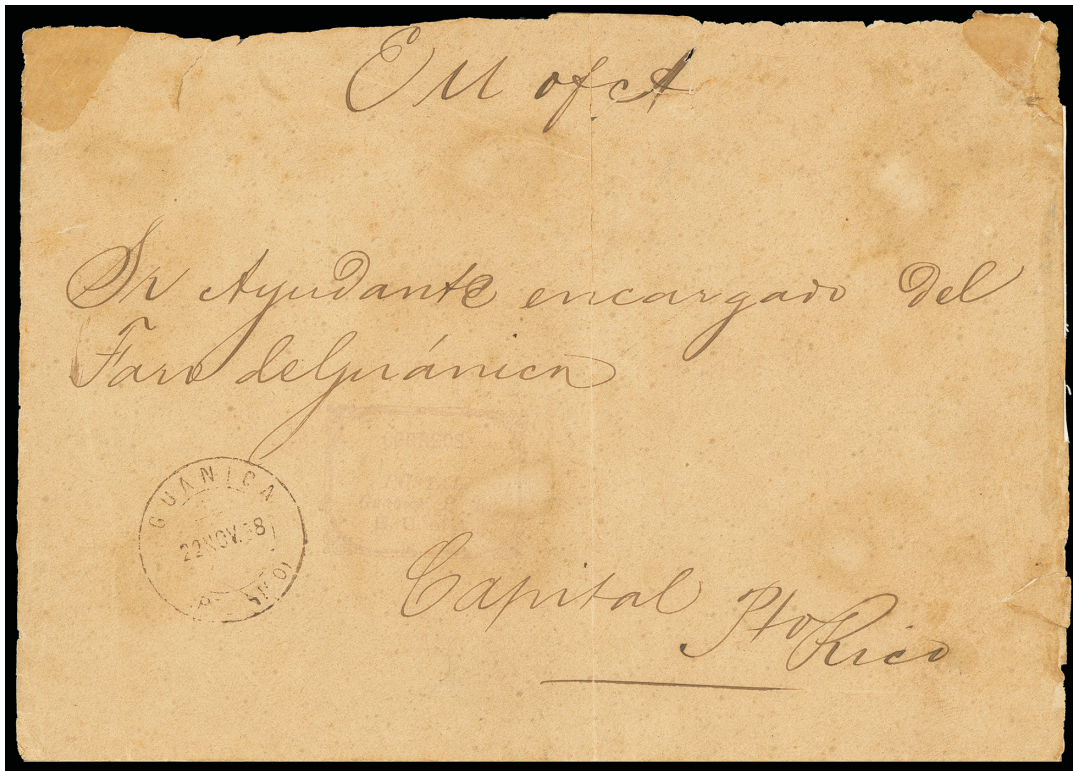 EU of A
Sr Ayudante encargado del
Faro de Guánica
GUANICA
22 NOV. 98
Capital Pto Rico